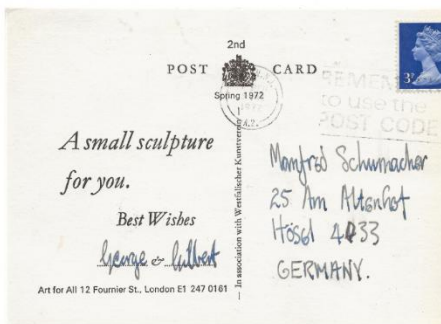 2nd
POST CARD
Spring 1972
1972
REMEMBER
to use the
POST CODE
3P
A small sculpture
for you.
Best Wishes
George & Gilbert
Art for All 12 Fournier St., London E1 247 0161
In association with Westfälischer Kunstverein
Manfred Schumacher
25 Am Altenhof
Hösel 4033
GERMANY.